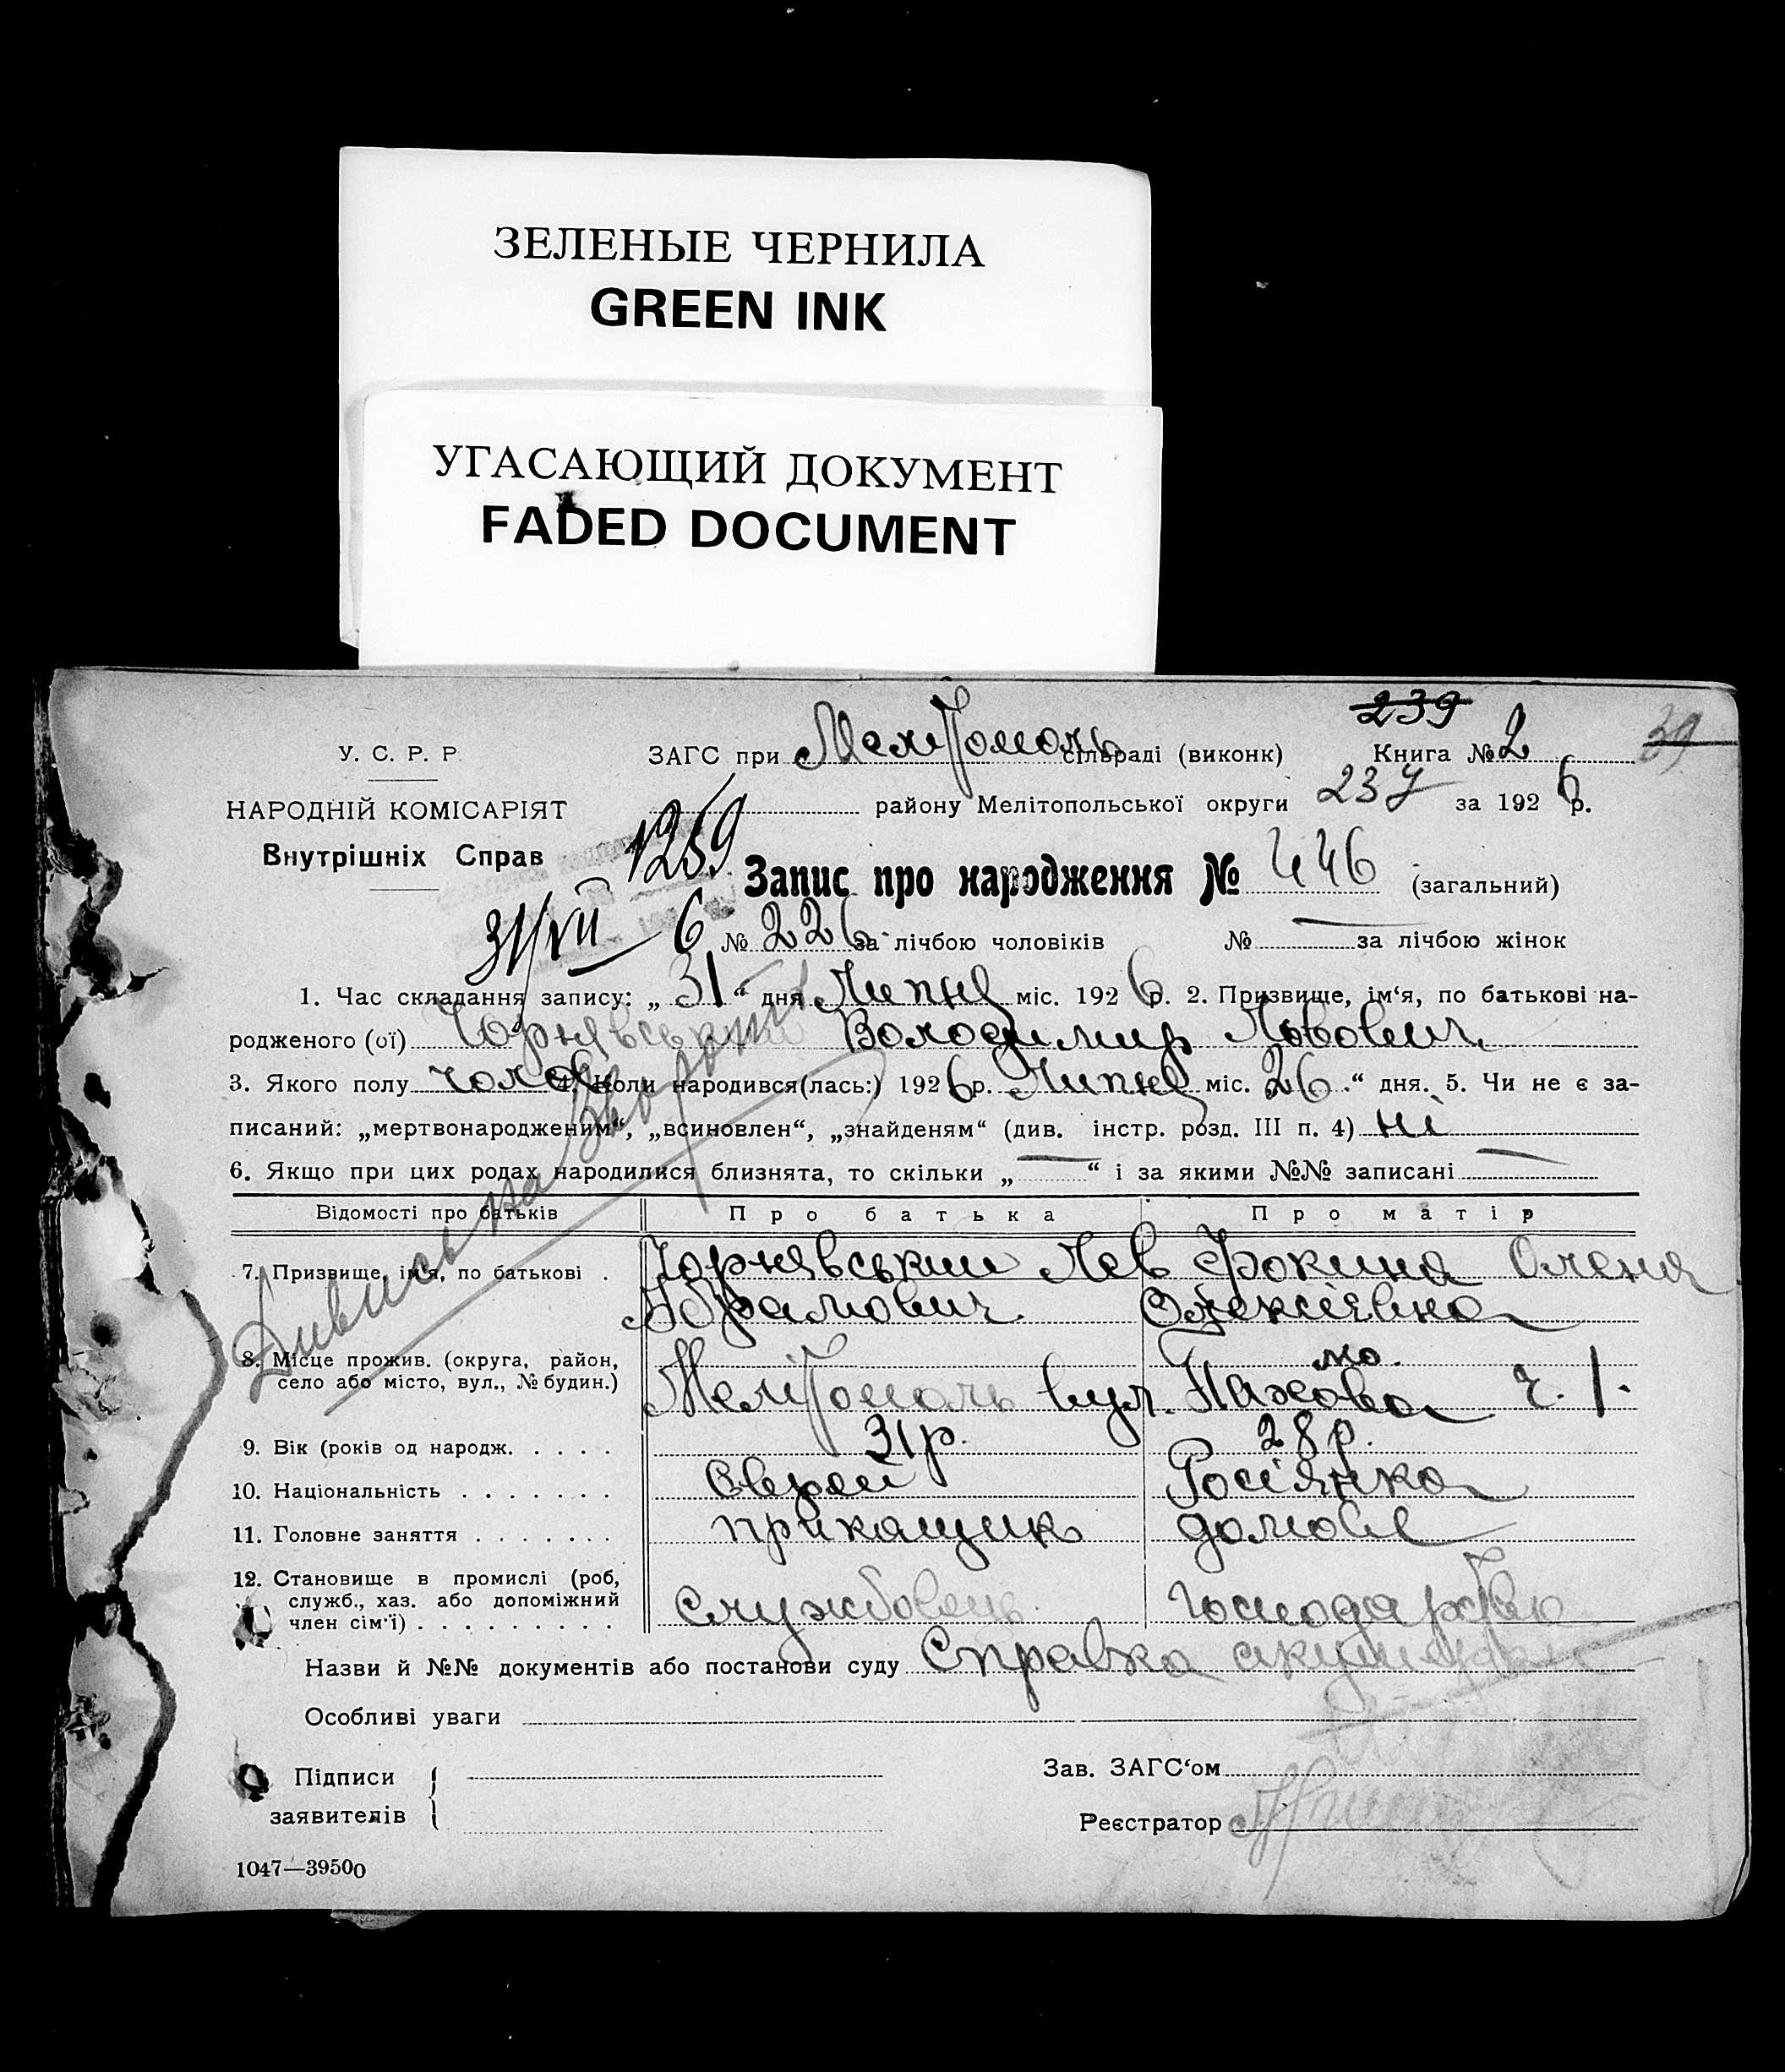 ЗЕЛЕНЫЕ ЧЕРНИЛА
GREEN INK
УГАСАЮЩИЙ ДОКУМЕНТ
FADED DOCUMENT
239
39
У. С. Р. Р. ЗАГС при Мелітополь сільраді (виконк) Книга № 2
НАРОДНІЙ КОМІСАРІЯТ району Мелітопольської округи 237 за 1926 р.
Внутрішніх Справ 1259 Запис про народження № 446 (загальний)
31/VII 6 № 226 за лічбою чоловіків № — за лічбою жінок
1. Час складання запису: „31“ дня Липня міс. 1926 р. 2. Призвище, ім‘я, по батькові на-
родженого (ої) Чорнявський Володимир Львович
3. Якого полу чолов 4. Коли народився(лась:) 1926 р. Липня міс. 26 “ дня. 5. Чи не є за-
писаний: „мертвонародженим“, „всиновлен“, „знайденям“ (див. інстр. розд. III п. 4) ні
6. Якщо при цих родах народилися близнята, то скільки „—“ і за якими №№ записані —
Дивись на звороті
Відомості про батьків Про батька Про матір
7. Призвище, ім‘я, по батькові . Чорнявський Лев Фокина Олена
Абрамович Олексіївна
8. Місце прожив. (округа, район,
село або місто, вул., № будин.) Мелітополь вул. ч. 1.
9. Вік (років од народж. . . . . 31 р. 28 р.
10. Національність . . . . . . . Єврей Росіянка
11. Головне заняття . . . . . . . прикащик домове
12. Становище в промислі (роб,
служб., хаз. або допоміжний
член сім‘ї) . . . . . . . . . службовець господарство
Назви й №№ документів або постанови суду Справка акушерки
Особливі уваги
Підписи
заявителів
Зав. ЗАГС‘ом
Реєстратор
1047—39500